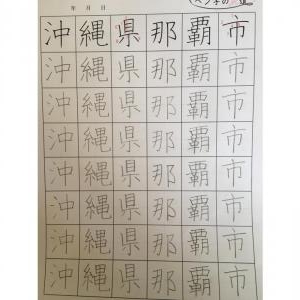 年 月 日
沖縄県那覇市
沖縄県那覇市
沖縄県那覇市
沖縄県那覇市
沖縄県那覇市
沖縄県那覇市
沖縄県那覇市
沖縄県那覇市